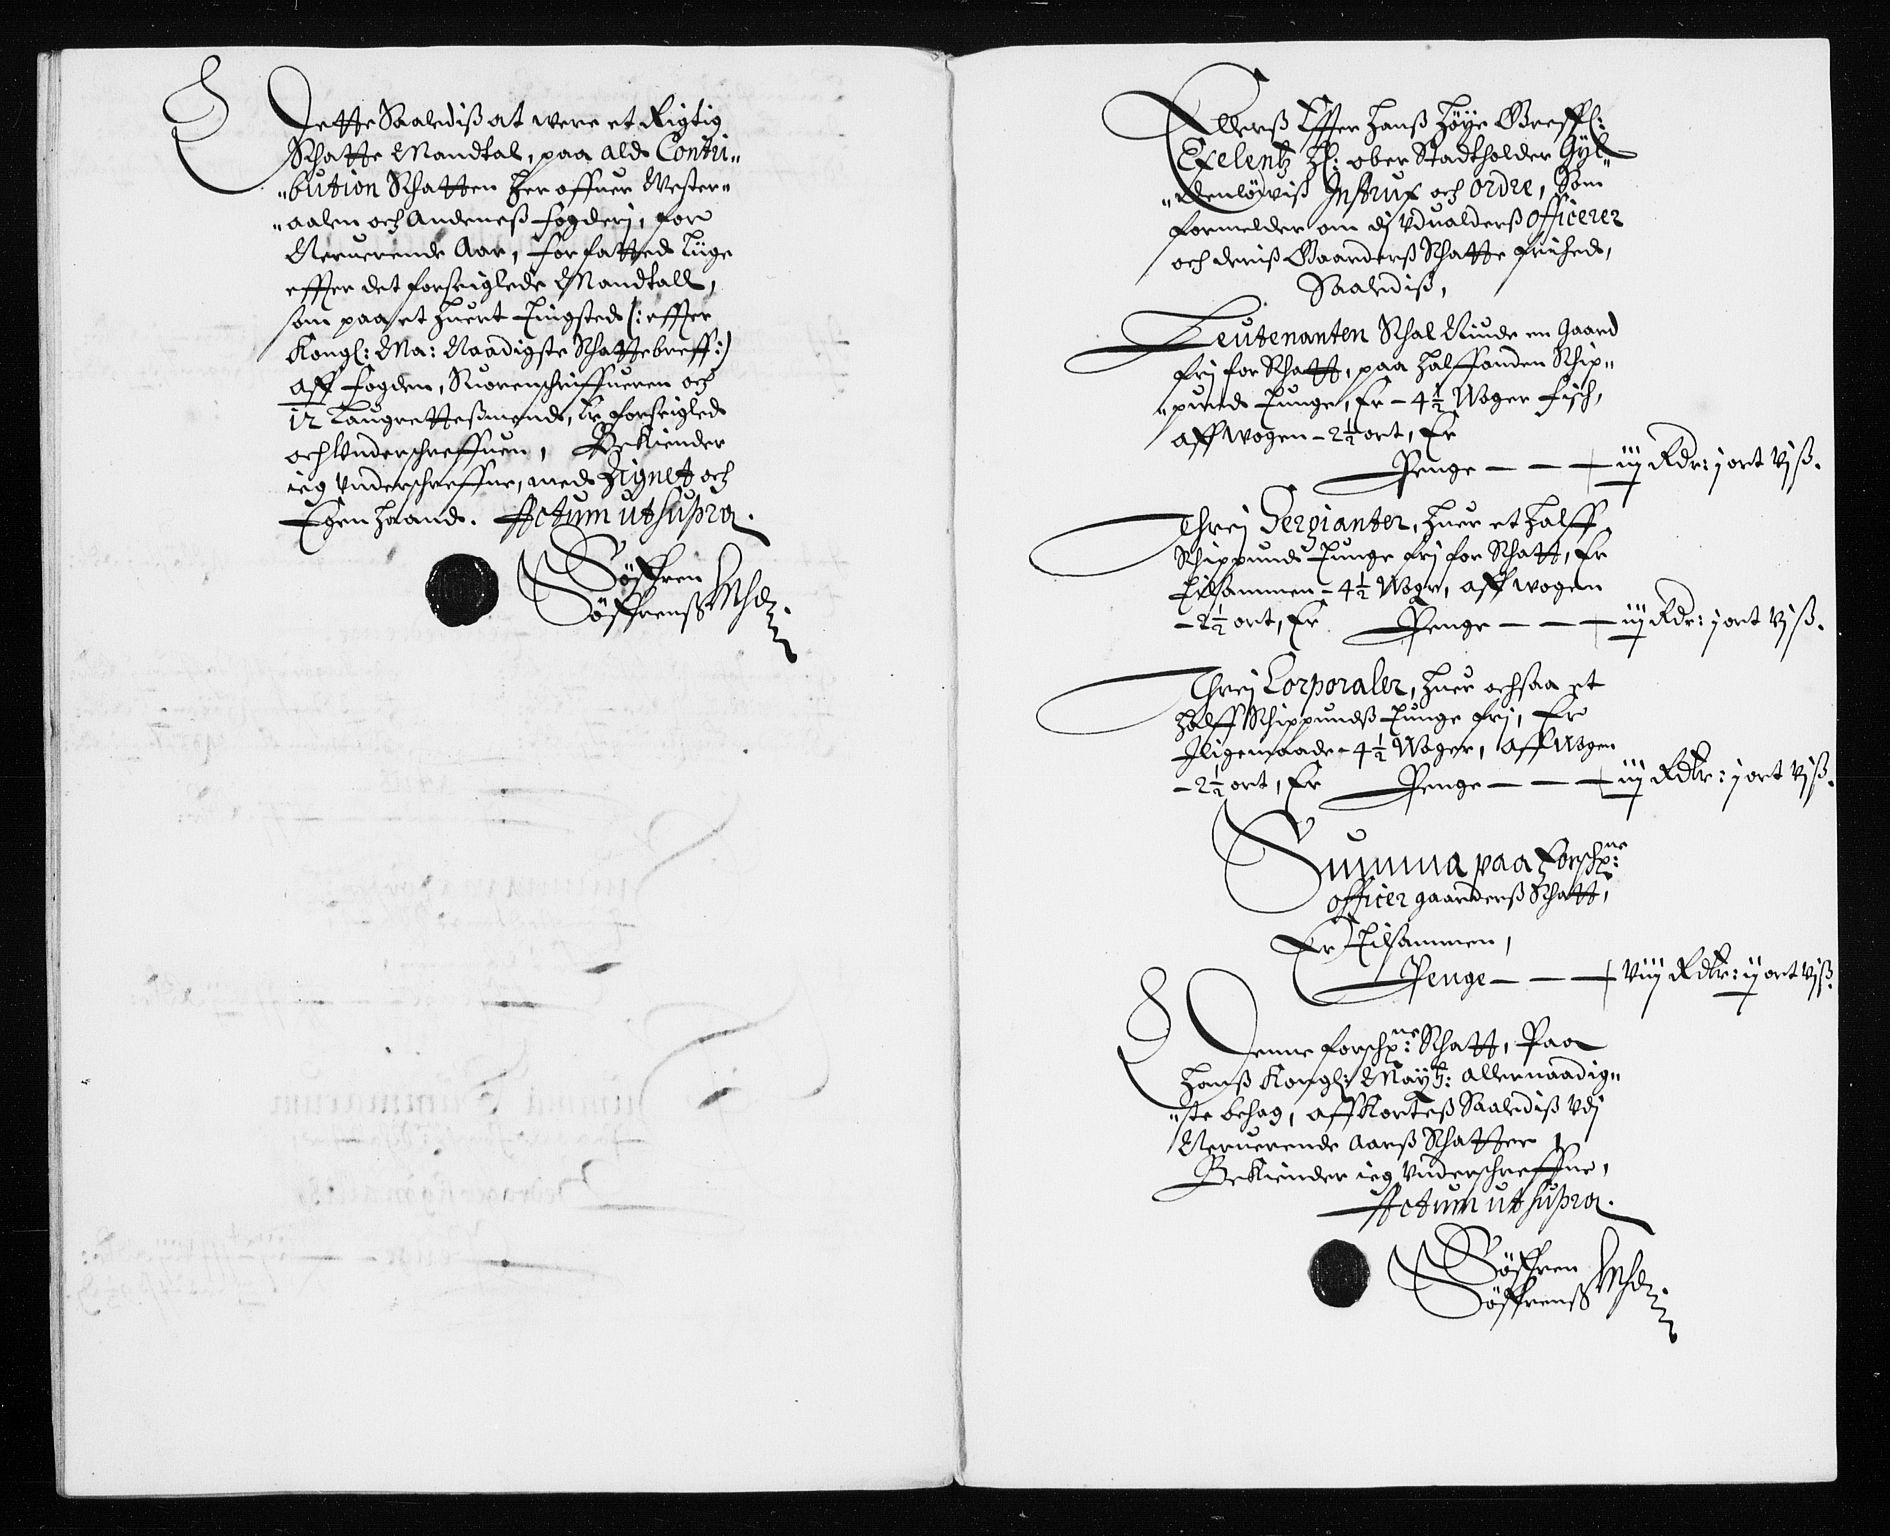 Dette Saalediß at were et Rigtig
Schatte Mandtal, paa ald Contri„
„bution Schatten her offuer Wester„
„aalen och Andeneß fogderj, for
Neruerende Aar, forfatted Liige
effter det forseiglede Mandtall,
som paa et huert tingsted (: effter
Kongl: Ma: Naadigste Schattebreff:)
aff fogden, Suorenschriffueren och
12 Laugrettesmend, Er forseigled
och Underschreffuen, Bekiender
ieg Underschreffne, med Zignet och
Egen haand. Actum ut supra.
Søffren
Søffrenß
Ellerß Effter Hanß Høye Greffl:
Exelentz Hl: ober Stadtholder Gyl„
„denløwiß Instrux och ordre, Som
formelder om dj Udualderß officerer
och deriß Gaarderß Schatte friihed,
Saalediß,
Leutenanten Schal Niude en Gaard
frj for Schatt, paa halffanden Schip„
„pund Tunge, Er - 4½ Woger fisch,
aff wogen - 2½ ort, Er
Penge — — — iij Rdr: j ort vj ß.
Threj Sergianter, huer et halff
Schippund Tunge frj for Schatt, Er
Tilsammen - 4½ Woger, aff wogen
- 2½ ort, Er Penge — — — iij Rdr: j ort vj ß.
Threj Corporaler, huer ochsaa et
halff Schippundß Tunge frj, Er
Iligemaade - 4½ Woger, aff Wogen
- 2½ ort, Er Penge — — — iij Rdlr: j ort vj ß.
Summa paa forschr:ne
officer gaarderß Schatt,
Er Tilsammen,
Penge — — — viij Rdlr: ij ort vj ß
Denne forschr:ne Schatt, Paa
Hanß Kongl: Maytz: allernaadig„
„ste behag, affkorteß Saalediß Udj
Neruerende Aarß Schatter
Bekiender ieg Underschreffne,
Actum ut supra.
Søffren
Søffrenß